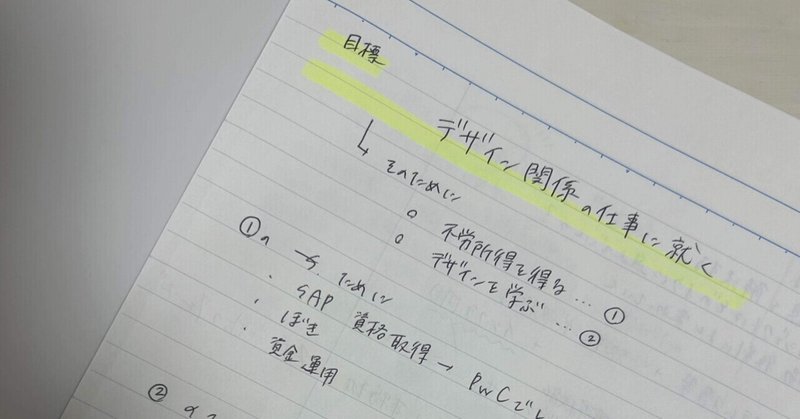 目標
デザイン関係の仕事に就く
↳ そのために
○ 不労所得を得る… ①
○ デザインを学ぶ… ②
①の → ために
・SAP 資格取得 → PwCで
・ぼき
・資金運用
②の